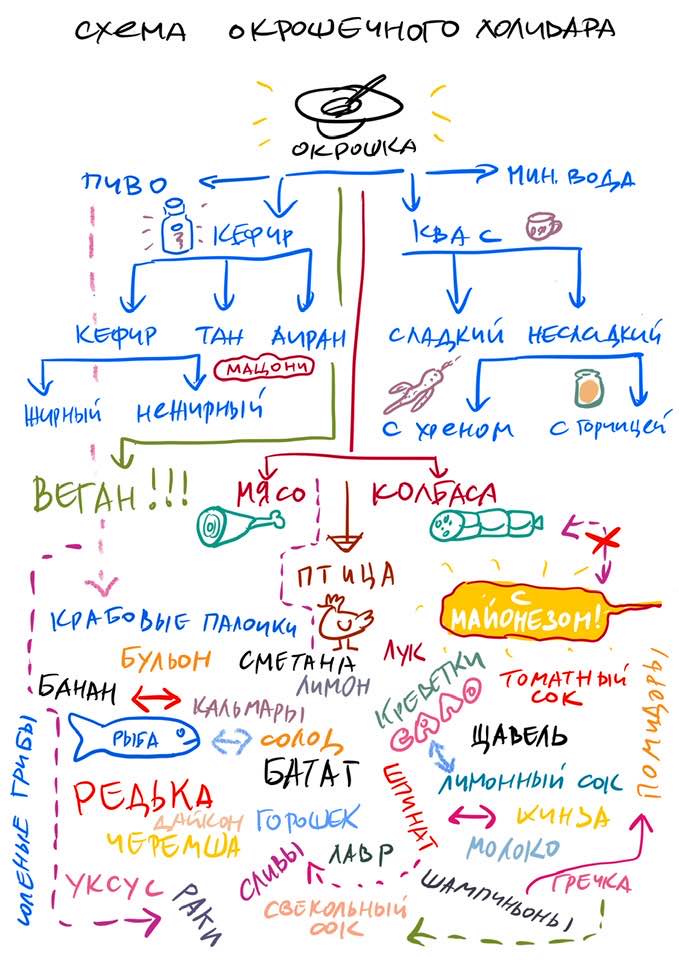 СХЕМА ОКРОШЕЧНОГО ХОЛИВАРА
ОКРОШКА
ПИВО
МИН. ВОДА
КЕФИР
КВАС
КЕФИР ТАН АИРАН
СЛАДКИЙ НЕСЛАДКИЙ
МАЦОНИ
ЖИРНЫЙ НЕЖИРНЫЙ
С ХРЕНОМ С ГОРЧИЦЕЙ
ВЕГАН!!!
МЯСО КОЛБАСА
ПТИЦА
С
МАЙОНЕЗОМ!
КРАБОВЫЕ ПАЛОЧКИ
БУЛЬОН СМЕТАНА ЛУК
БАНАН ЛИМОН
КАЛЬМАРЫ
КРЕВЕТКИ
САЛО
ТОМАТНЫЙ
СОК
РЫБА
СОЛОД
ЩАВЕЛЬ
ПОМИДОРЫ
БАТАТ
ЛИМОННЫЙ СОК
РЕДЬКА
ШПИНАТ
ДАЙКОН ГОРОШЕК
КИНЗА
ЧЕРЕМША
ЛАВР
МОЛОКО
СОЛЕНЫЕ ГРИБЫ
УКСУС
РАКИ
СЛИВЫ
СВЕКОЛЬНЫЙ
СОК
ШАМПИНЬОНЫ
ГРЕЧКА